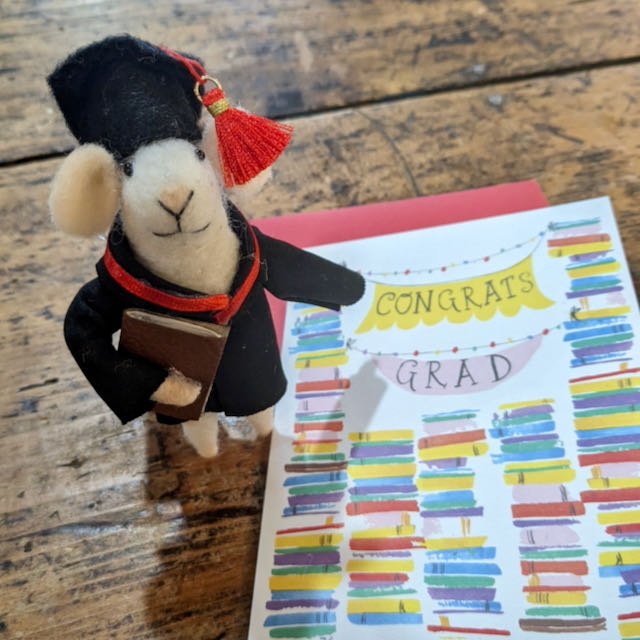 CONGRATS
GRAD